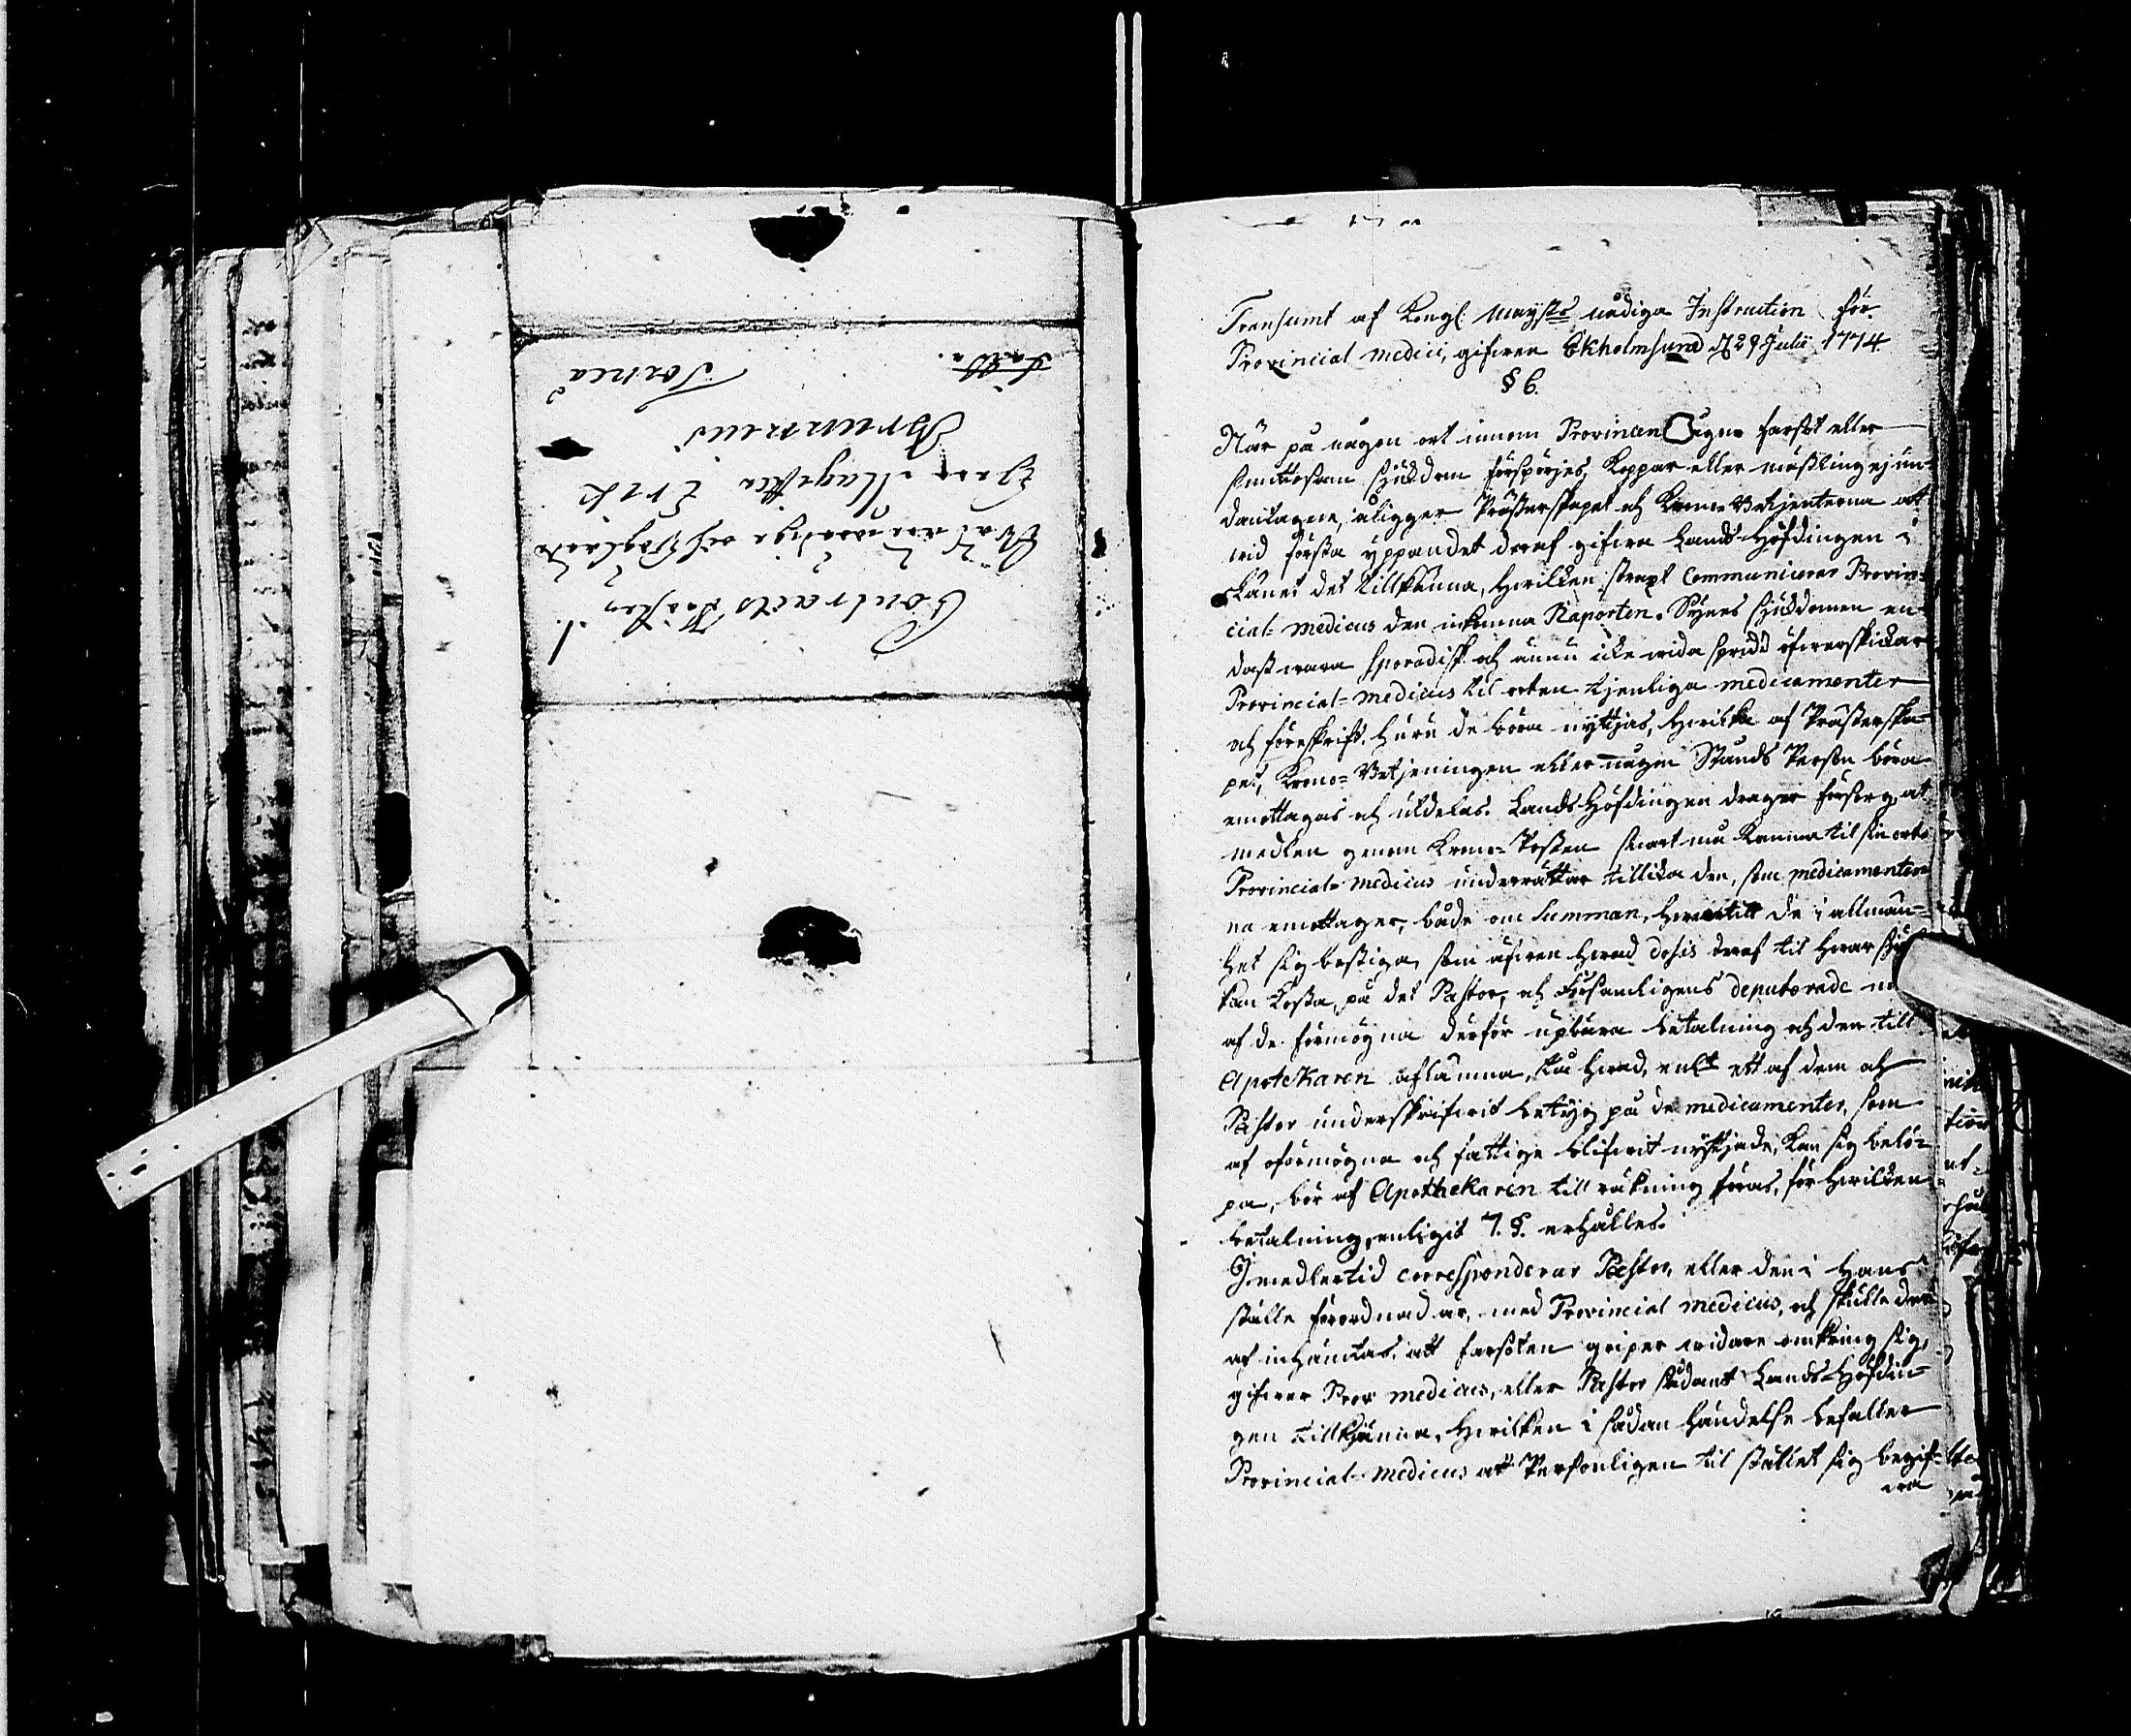 Contracts Prosten
Wälärevördige och Höglärde
Herr Magister Eric
Brunnius
Torneå
Transumt af Kongl: Mayst:s nådiga Instruction för
Provincial Medici, gifven Ekholmsund d 29 Julii 1774.
§ 6.
När på någon ort innom Provincen någon farsot eller
smittosam sjukdom förspörjes, Koppar eller mäßling ej un-
dantagne, åligger Prästerskapet och Krono-Betjenterna att
wid första yppandet deraf gifwa Lands-Höfdingen i
Länet det tillkänna, hwilken straxt Communicerar Provin-
cial-Medicus den inkomna Raporten. Synes sjukdomen en-
dast wara sporadisk och ännu icke wida spridd öfwerskickar
Provincial-Medicus til orten tjenliga medicamenter
och föreskrift, huru de böra nyttjas, hwilka af Prästerska-
pet, Krono-Betjeningen eller någon Stånds Person böra
emottagas och utdelas. Lands-Höfdingen drager försorg, at
medlen genom Krono-Posten snart må komma til sin ort
Provincial-Medicus underrättar tillika den, som medicamenter-
na emottager, både om Summan, hwartill de i allmän-
het sig bestiga, som äfwen hwad dosis deraf til hwar sjuk
kan kosta, på det Pastor, och Församligens deputerade må
af de förmögna derför upbära betalning och den till
Apotekaren aflämna, Och hwad, enl:t ett af dem och
Pastor underskrifwit betyg på de medicamenter, som
af oförmögna och fattige blifwit nyttjade, kan sig belö-
pa, bör af Apothekaren till räkning föras, för hwilken
betalning, enligit 7. §. erhålles.
Imedlertid corresponderar Pastor, eller den i Hans
ställe förordnad är, med Provincial Medicus, och skulle der-
af inhämtas, att farsoten griper widare omkring sig,
gifwer Prov: Medicus, eller Pastor sådant Lands-Höfdin-
gen tillkänna, hwilken i sådan händelse befaller
Provincial-Medicus att Personligen til stället sig begif-
wa